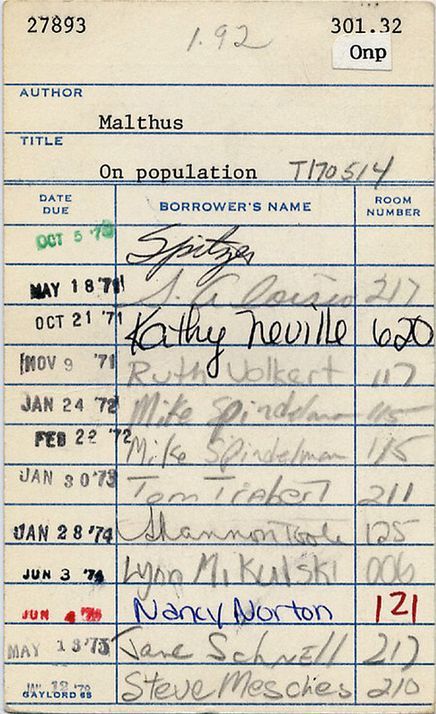 27893 1.92 301.32
Onp
AUTHOR
Malthus
TITLE
On population T170514
DATE DUE BORROWER'S NAME ROOM NUMBER
OCT 5 '70 Spitzer
MAY 18 '71 217
OCT 21 '71 Kathy Neville 620
NOV 9 '71 Ruth Volkert 117
JAN 24 '72 Mike Spindelman 115
FEB 22 '72 Mike Spindelman 115
JAN 30 '73 Tom Triabert 211
JAN 28 '74 Shannon Toole 125
JUN 3 '74 Lynn Mikulski 006
JUN 4 Nancy Norton 121
MAY 13 '75 Jane Schnell 217
12 Steve Meschies 210
GAYLORD 65